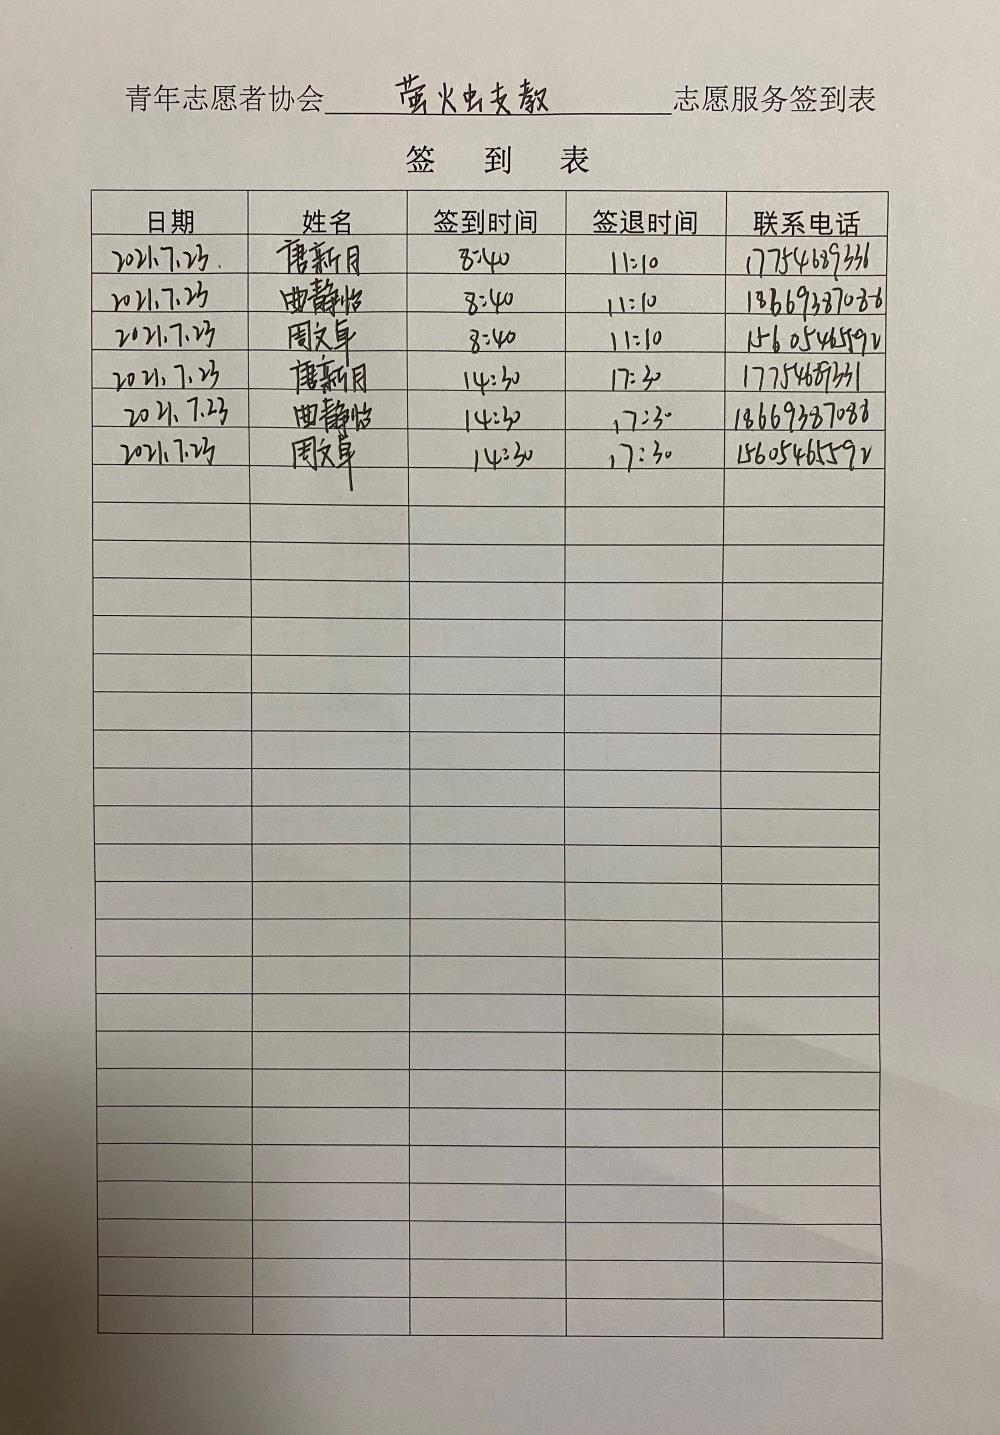 青年志愿者协会 萤火虫支教 志愿服务签到表
签 到 表
日期 姓名 签到时间 签退时间 联系电话
2021.7.23. 唐新月 8:40 11:10 17754689336
2021.7.23 曲静怡 8:40 11:10 18669387088
2021.7.23 周文卓 8:40 11:10 15605465592
2021.7.23 唐新月 14:30 17:30 17754689331
2021.7.23 曲静怡 14:30 17:30 18669387088
2021.7.23 周文卓 14:30 17:30 15605465592